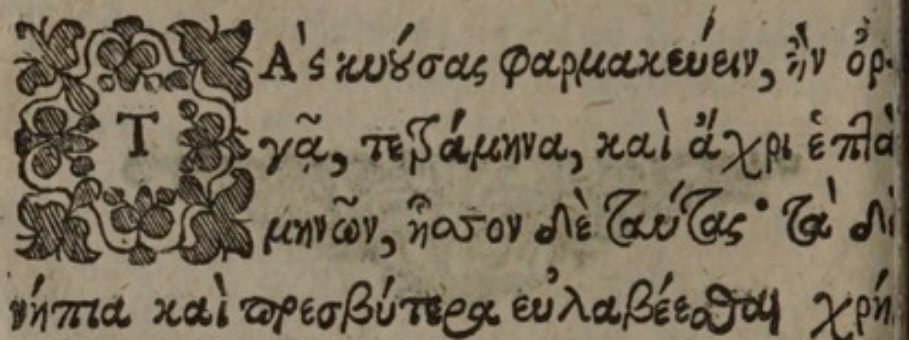 ΤᾺς κυούσας φαρμακεύειν, ἢν ὀρ-
γᾷ, τετράμηνα, καὶ ἄχρι ἑπτὰ
μηνῶν, ἧσσον δὲ ταύτας· τὰ δὲ
νήπια καὶ πρεσβύτερα εὐλαβέεσθαι χρή